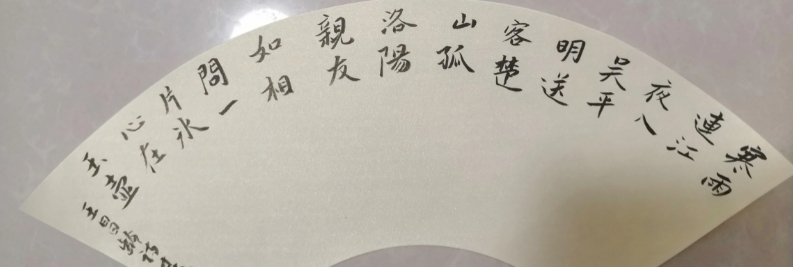 寒雨
連江
夜入
吴平
明送
客楚
山孤
洛陽
親友
如相
問一
片冰
心在
玉壺
王昌齡詩